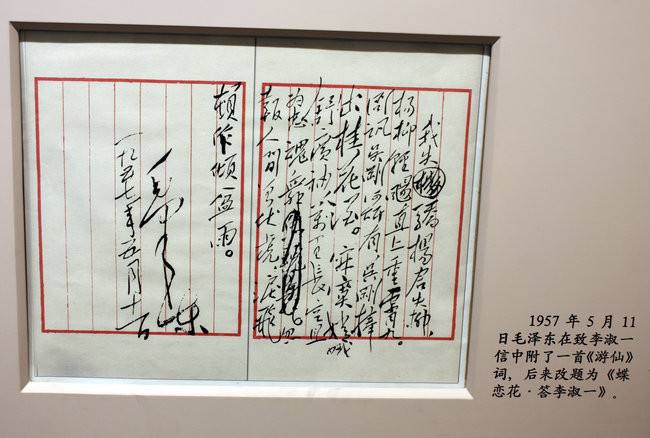 我失驕楊君失柳,
楊柳輕颺直上重霄九。
问訊吴剛何所有,吴剛捧
出桂花酒。寂寞嫦娥
舒廣袖,萬里長空且
忠魂舞。忽
報人間曾伏虎,淚飛
頓作傾盆雨。
毛泽东
一九五七年五月十一日
1957 年 5 月 11
日毛泽东在致李淑一
信中附了一首《游仙》
词，后来改题为《蝶
恋花·答李淑一》。